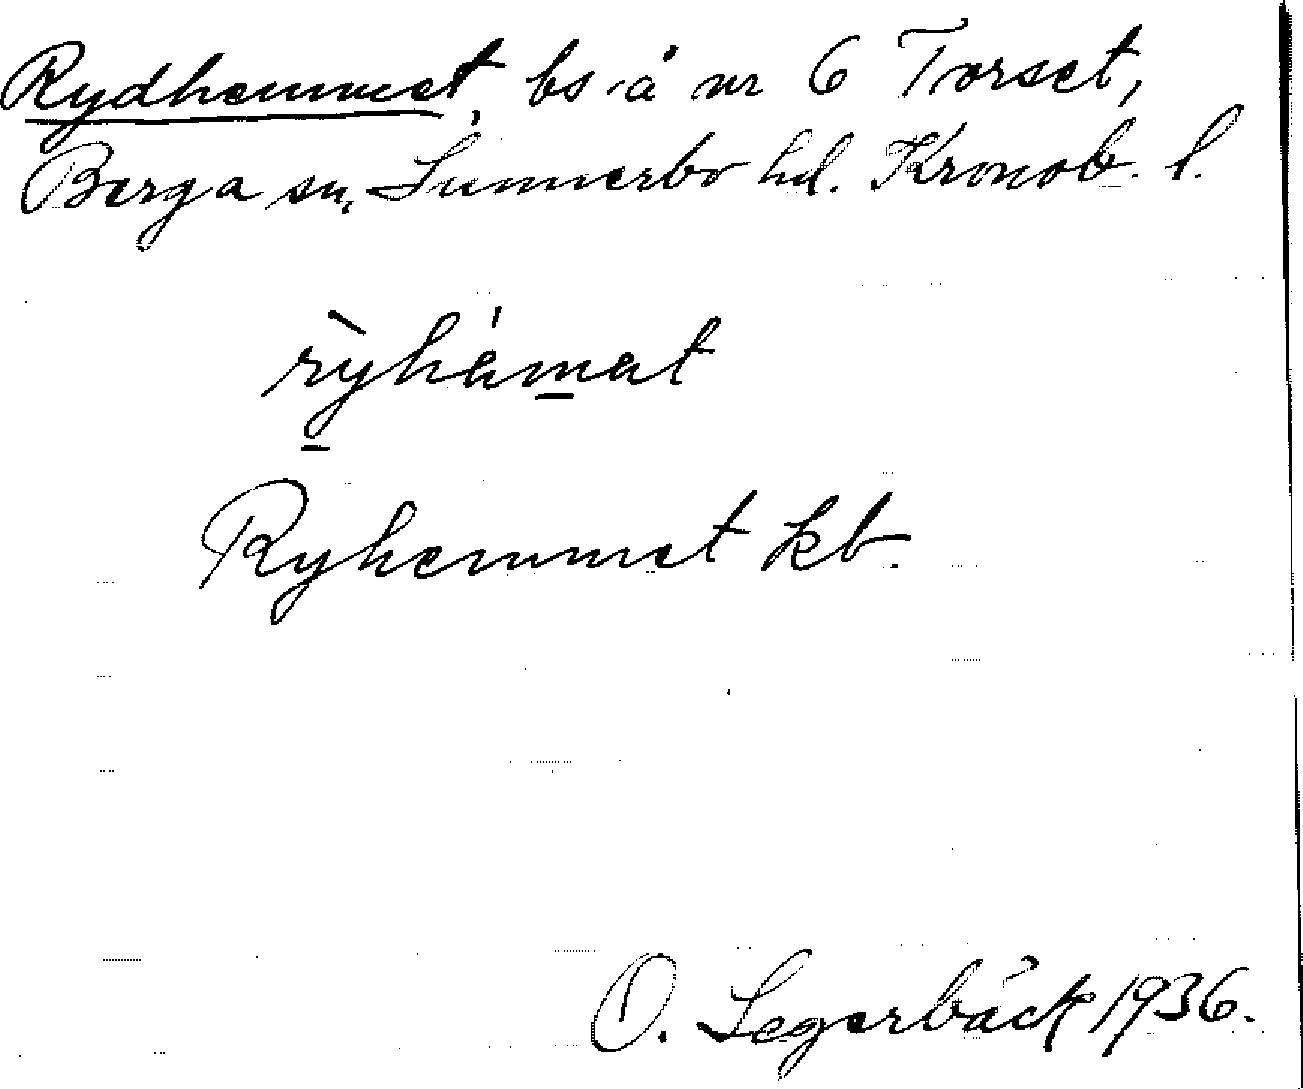 Rydhemmet, bs å nr 6 Torset,
Berga sn, Sunnerbo hd. Kronob. l.
rỳhàmat
Ryhemmet kb.
O. Segerbäck 1936.